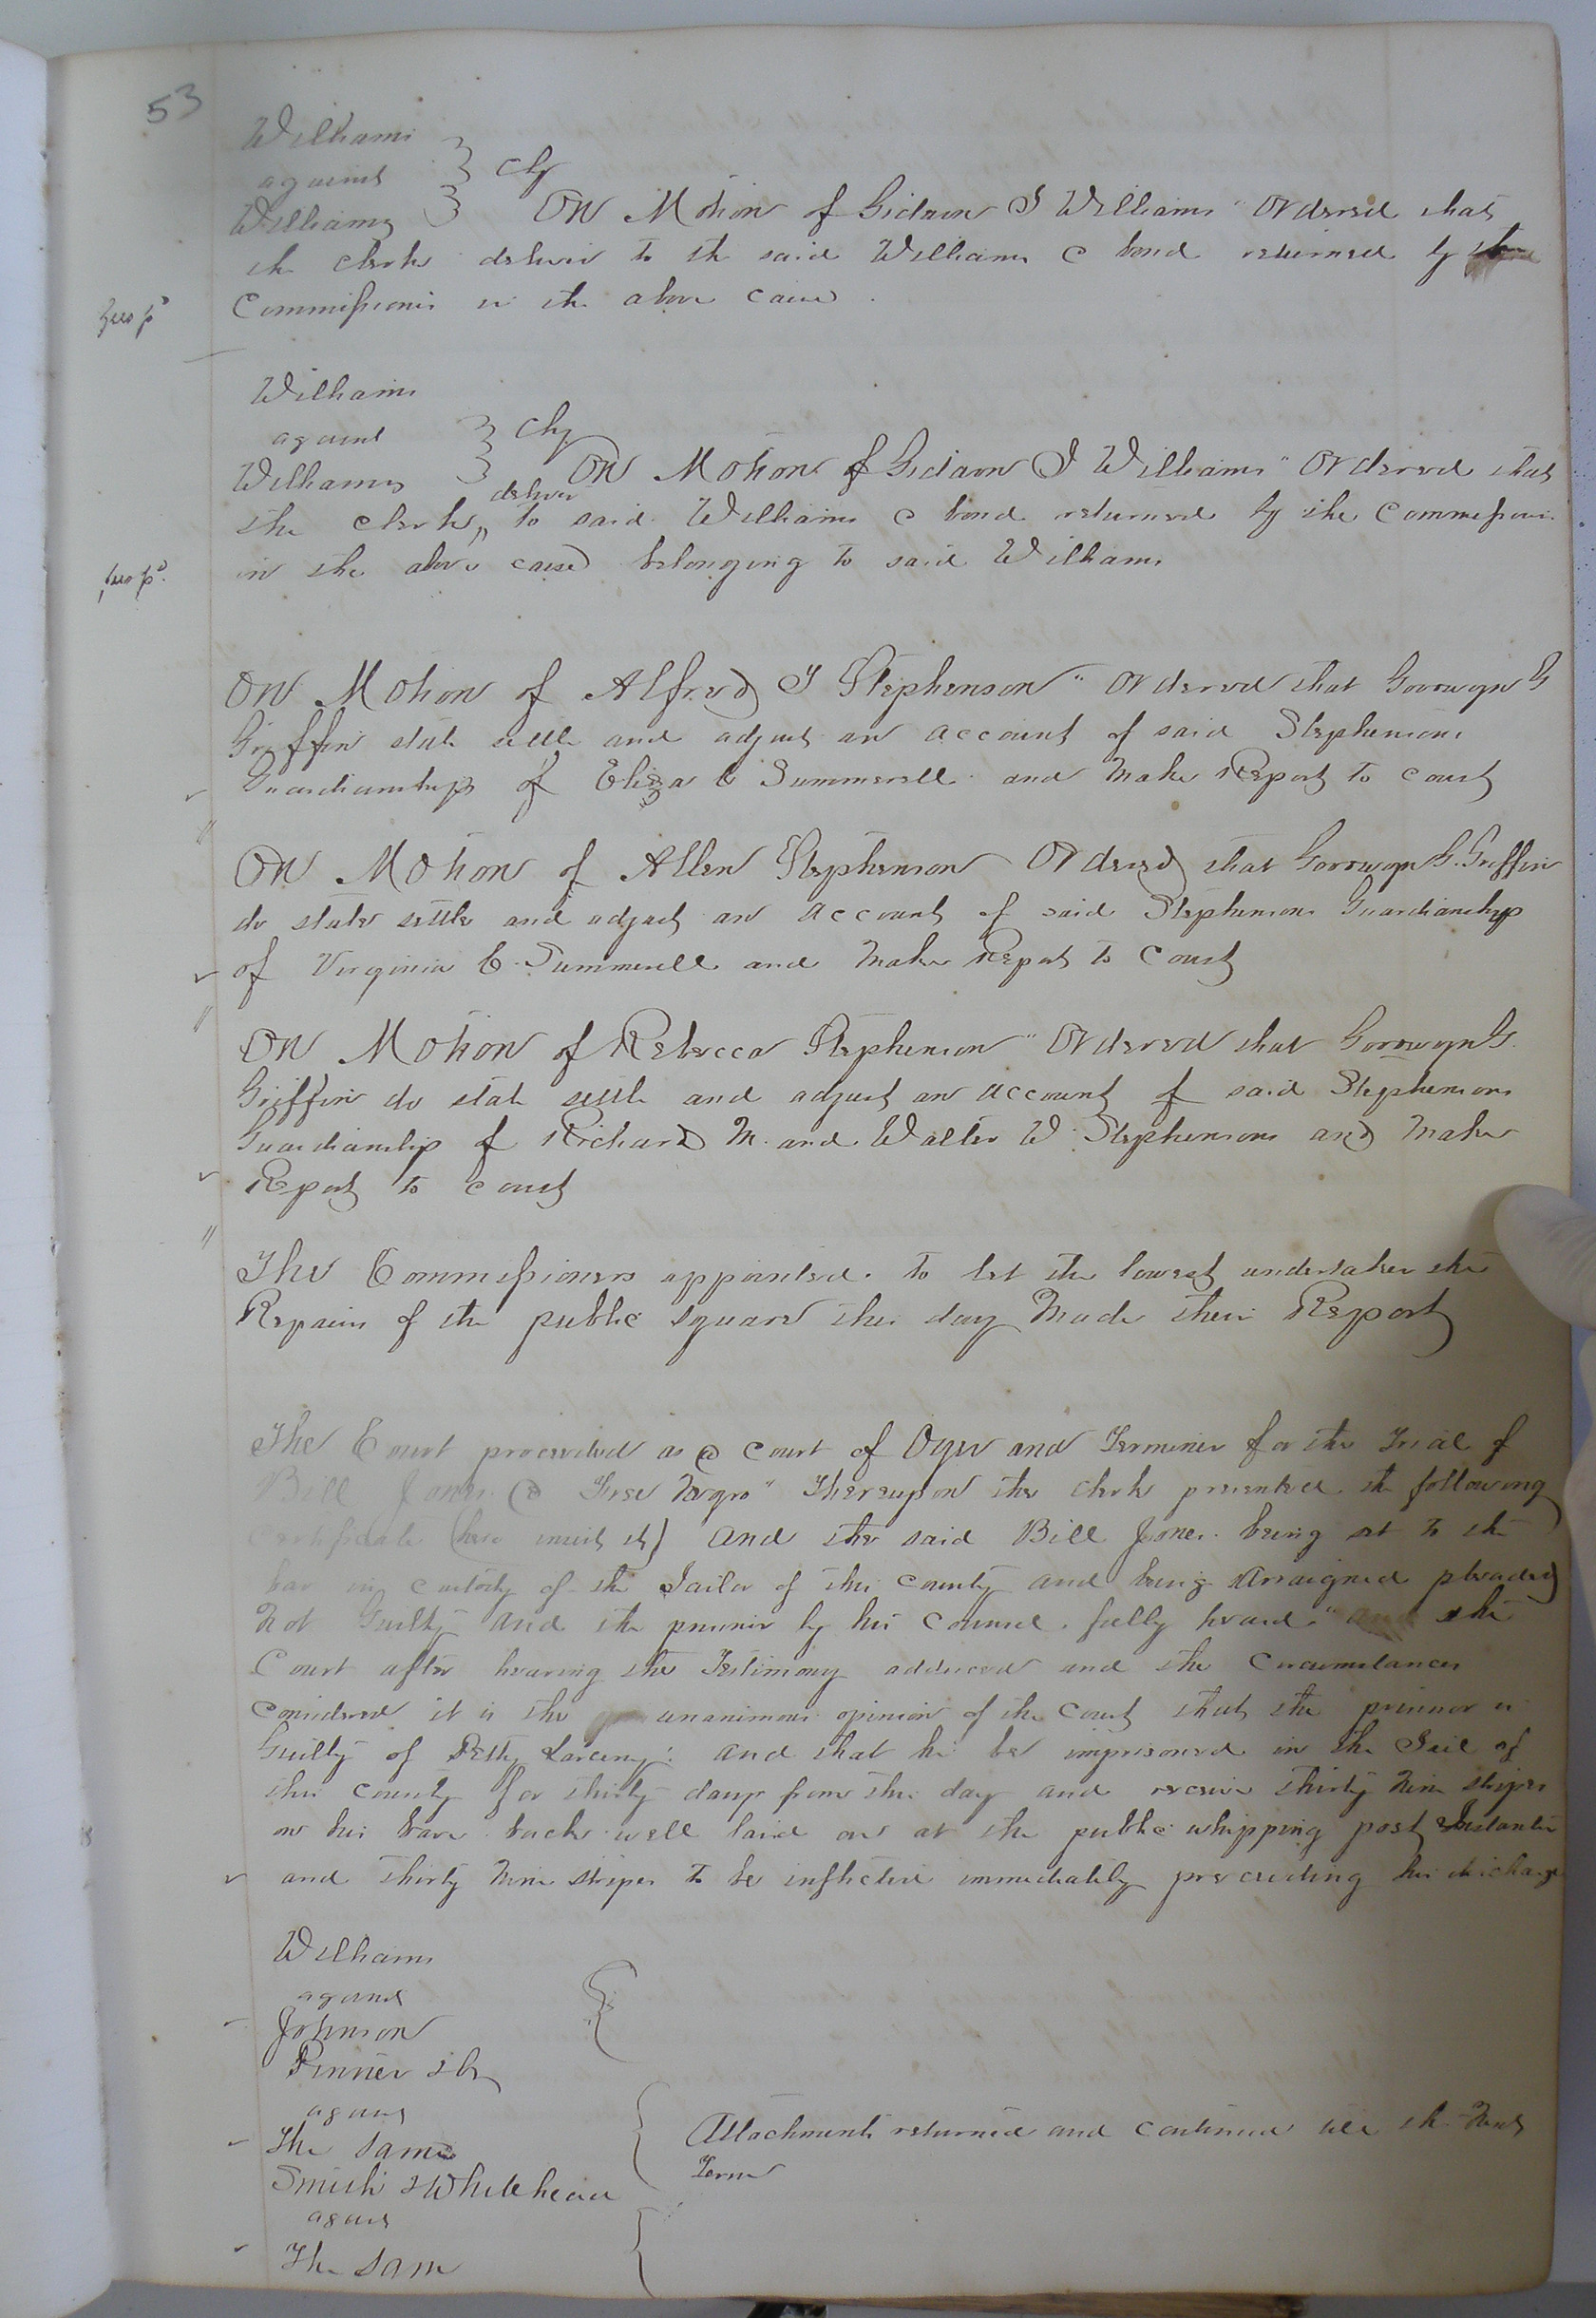 53
Williams
against
Williams } Chy
On Motion of Gideon J Williams " Ordered that
the clerk deliver to the said Williams a bond returned by the
Commissioners in the above cause.
Williams
against
Williams } Chy
On Motion of Gideon J Williams " Ordered that
the clerk deliver to said Williams a bond returned by the Commissioners
in the above cause belonging to said Williams
On Motion of Alfred J Stephenson " Ordered that G
Griffin state settle and adjust an account of said Stephensons
Guardianship of Eliza C Summerell and Make Report to court
On Motion of Allen Stephenson Ordered that G. Griffin
do state settle and adjust an account of said Stephensons Guardianship
of Virginia E. Summerell and Make Report to Court
On Motion of Rebecca Stephenson " Ordered that G.
Griffin do state settle and adjust an account of said Stephensons
Guardianship of Richard M. and Walter W. Stephensons and Make
Report to court
The Commissioners appointed to let the lowest undertaker the
Repairs of the public square this day Made their Report
The Court proceeded as a court of Oyer and Terminer for the Trial of
Bill Jones (a Free Negro " Thereupon the clerk presented the following
certificate (here insert it) and the said Bill Jones being set to the
bar in custody of the Jailor of this county and being Arraigned pleaded
Not Guilty and the prisoner by his counsel fully heard " and the
Court after hearing the Testimony adduced and the Circumstances
considered it is the unanimous opinion of the court that the prisoner is
Guilty of Petty Larceny: and that he be imprisoned in the Jail of
this county for thirty days from this day and receive thirty nine stripes
on his bare back well laid on at the public whipping post Instanter
and thirty nine stripes to be inflicted immediately preceeding his discharge
Williams
against
Johnson
Pinner & Co
against
The Same
Attachments returned and continued till the Next
Term
Smith & Whitehead
against
The Same